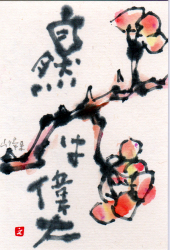 自然
は
偉大